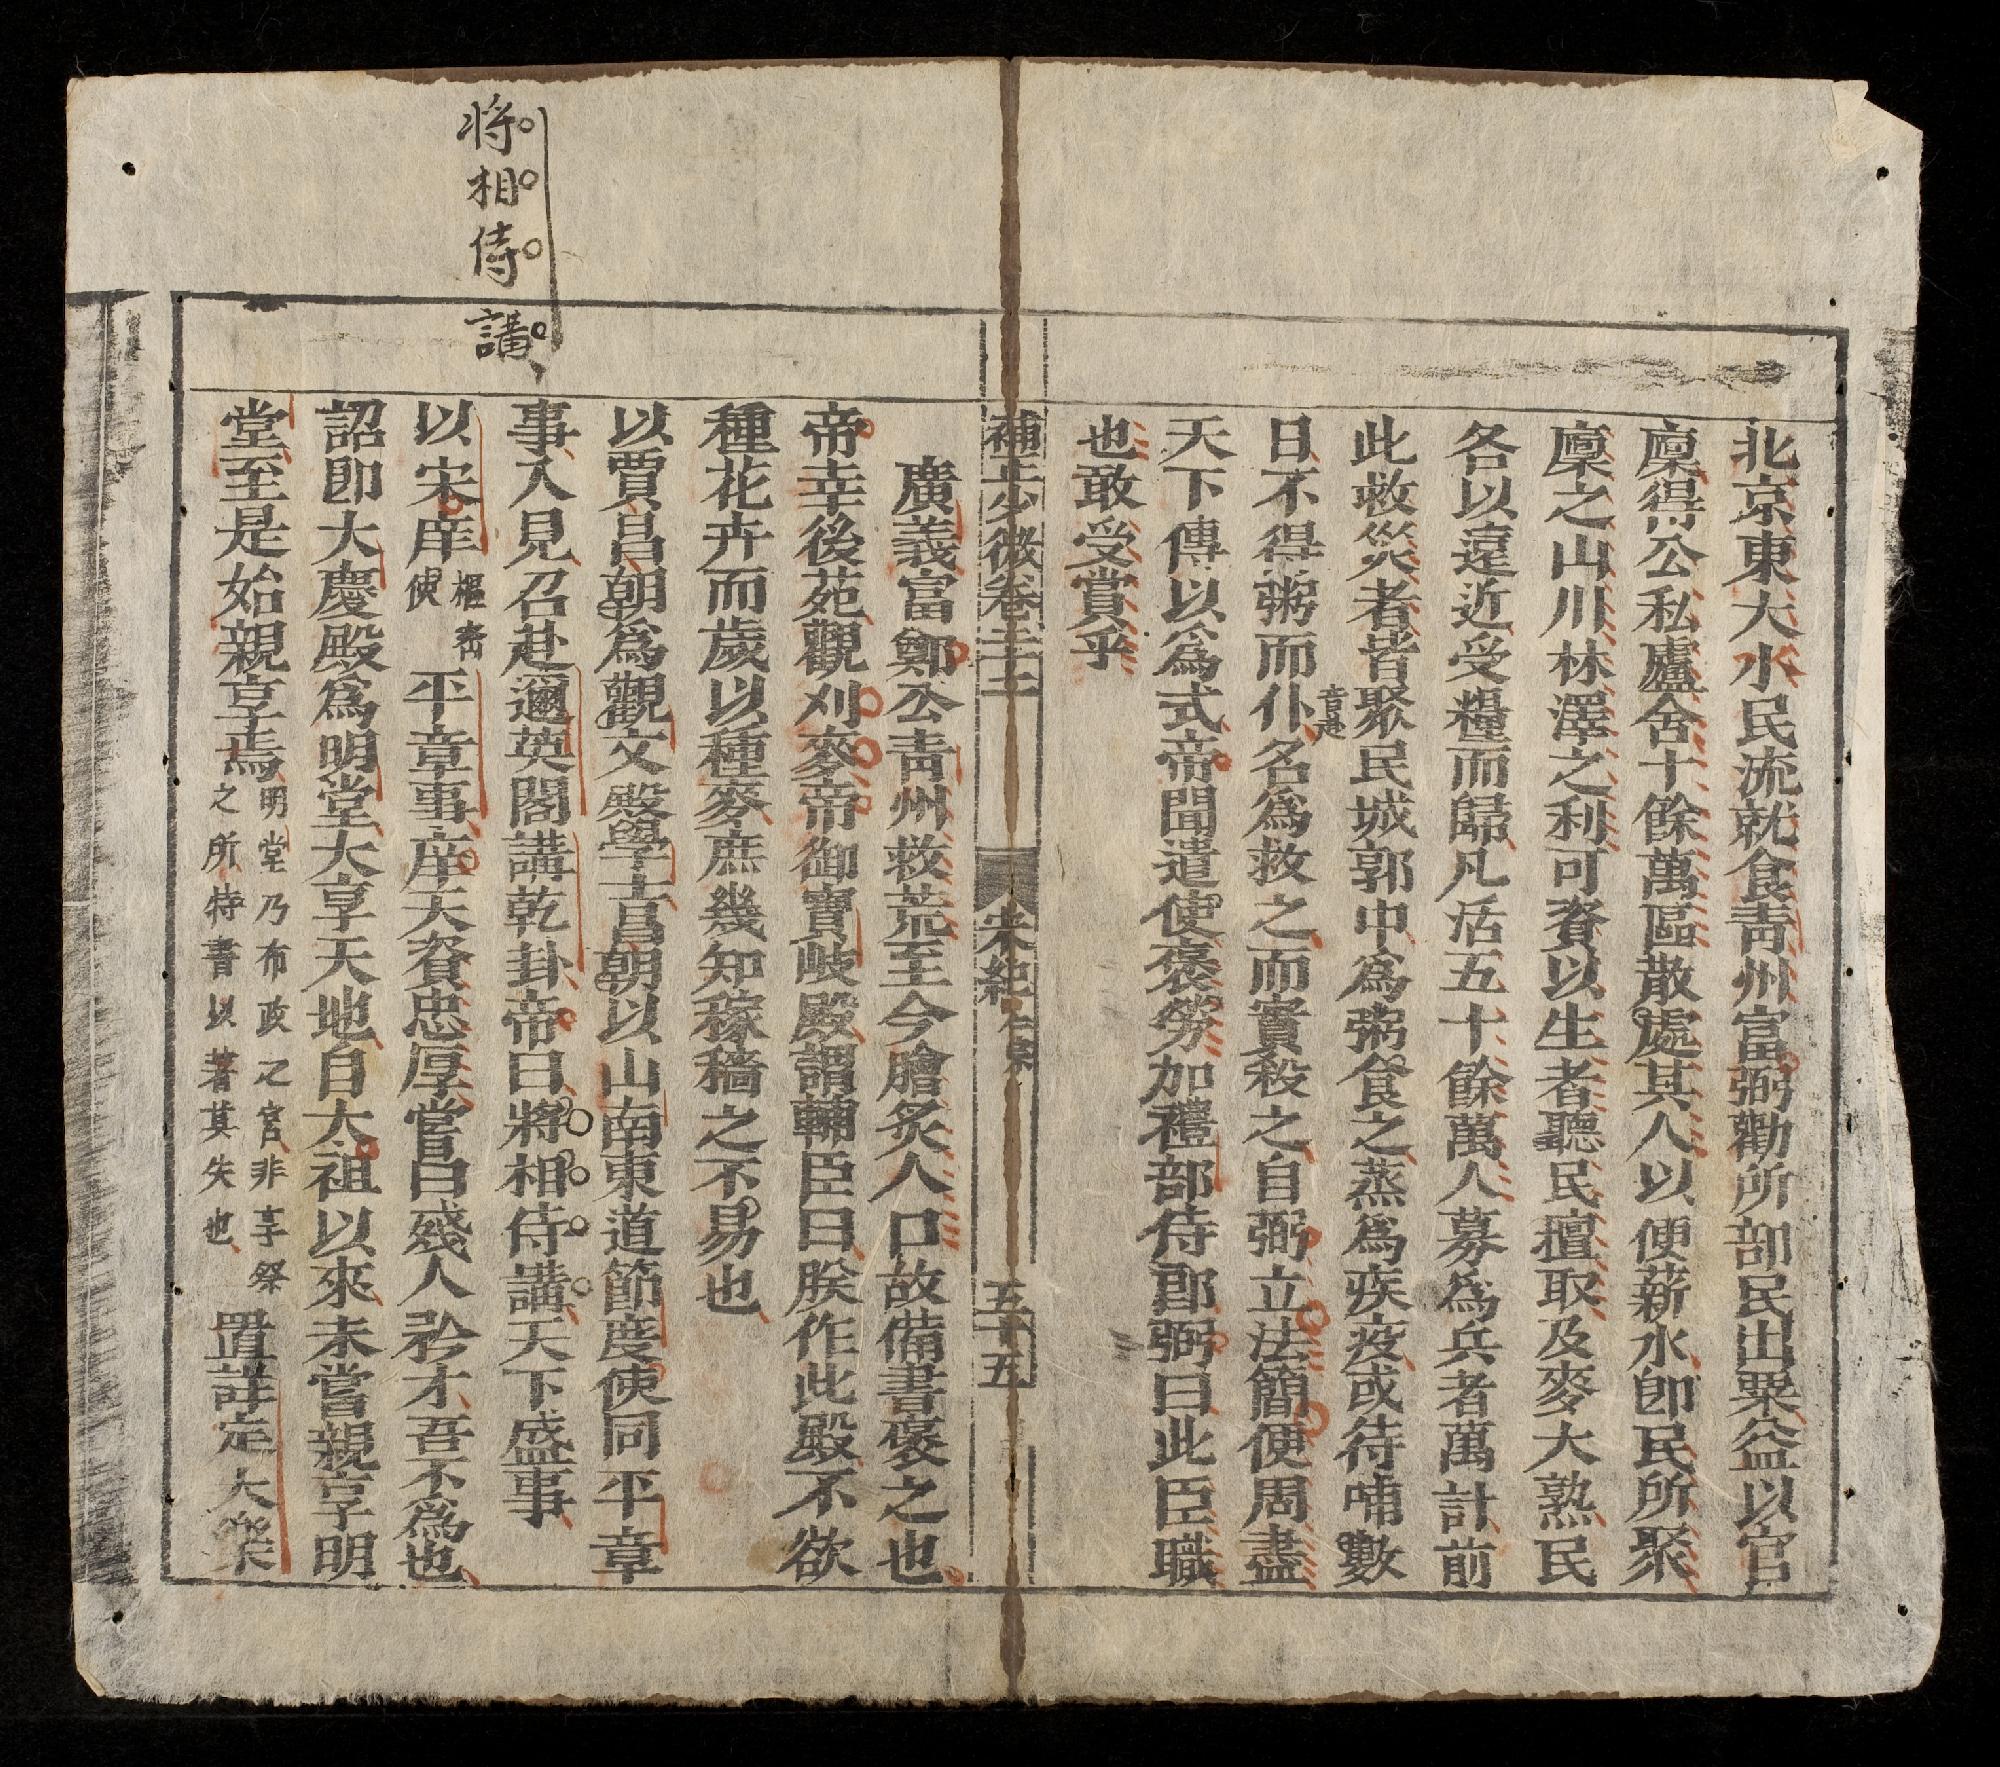 北京東大水民流就食靑州富弼勸所部民出粟益以官
廩得公私廬舍十餘萬區散處其人以便薪水卽民所聚
廩之山川林澤之利可資以生者聽民擅取及麥大熟民
各以遠近受糧而歸凡活五十餘萬人募爲兵者萬計前
此救災者皆聚民城郭中爲粥食之蒸爲疾疫或待哺數
日不得粥而仆名爲救之而實殺之自弼立法簡便周盡
天下傳以爲式帝聞遣使褒勞加禮部侍郎弼曰此臣職
也敢受賞乎
補上少微卷三十二 宋紀 仁宗 五十五
廣義富鄭公靑州救荒至今膾炙人口故備書褒之也
帝幸後苑觀刈麥帝御寶岐殿謂輔臣曰朕作此殿不欲
種花卉而歲以種麥庶幾知稼穡之不易也
以賈昌朝爲觀文殿學士昌朝以山南東道節度使同平章
事入見召赴邇英閣講乾卦帝曰將相侍講天下盛事
將相侍講
以宋庠樞密使平章事庠天資忠厚嘗曰殘人矜才吾不爲也
詔卽大慶殿爲明堂大享天地自太祖以來未嘗親享明
堂至是始親享焉明堂乃布政之宮非享祭之所特書以著其失也置詳定大樂